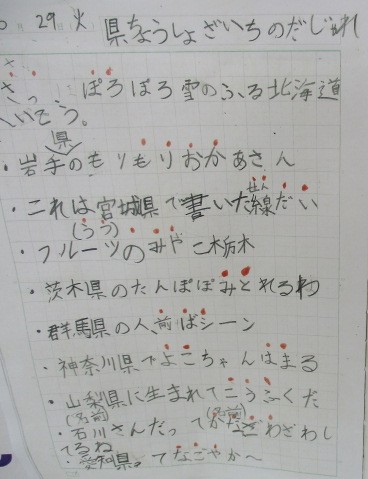 29 火 県ちょうしょざいちのだじゃれ
さっ ぽろぽろ雪のふる北海道
へいこう。
県
・岩手のもりもりおかあさん
・これは宮城県で書いた線だい
せん
(うう)
・フルーツのみや こ栃木
・茨木県のたんぽぽみとれるわ
・群馬県の人、前ばシーン
・神奈川県でよこちゃんはまる
・山梨県に生まれてこうふくだ
(名前) (名前)
・石川さんだっ てかなざわざわし
てるね
・愛知県。てなごやか〜